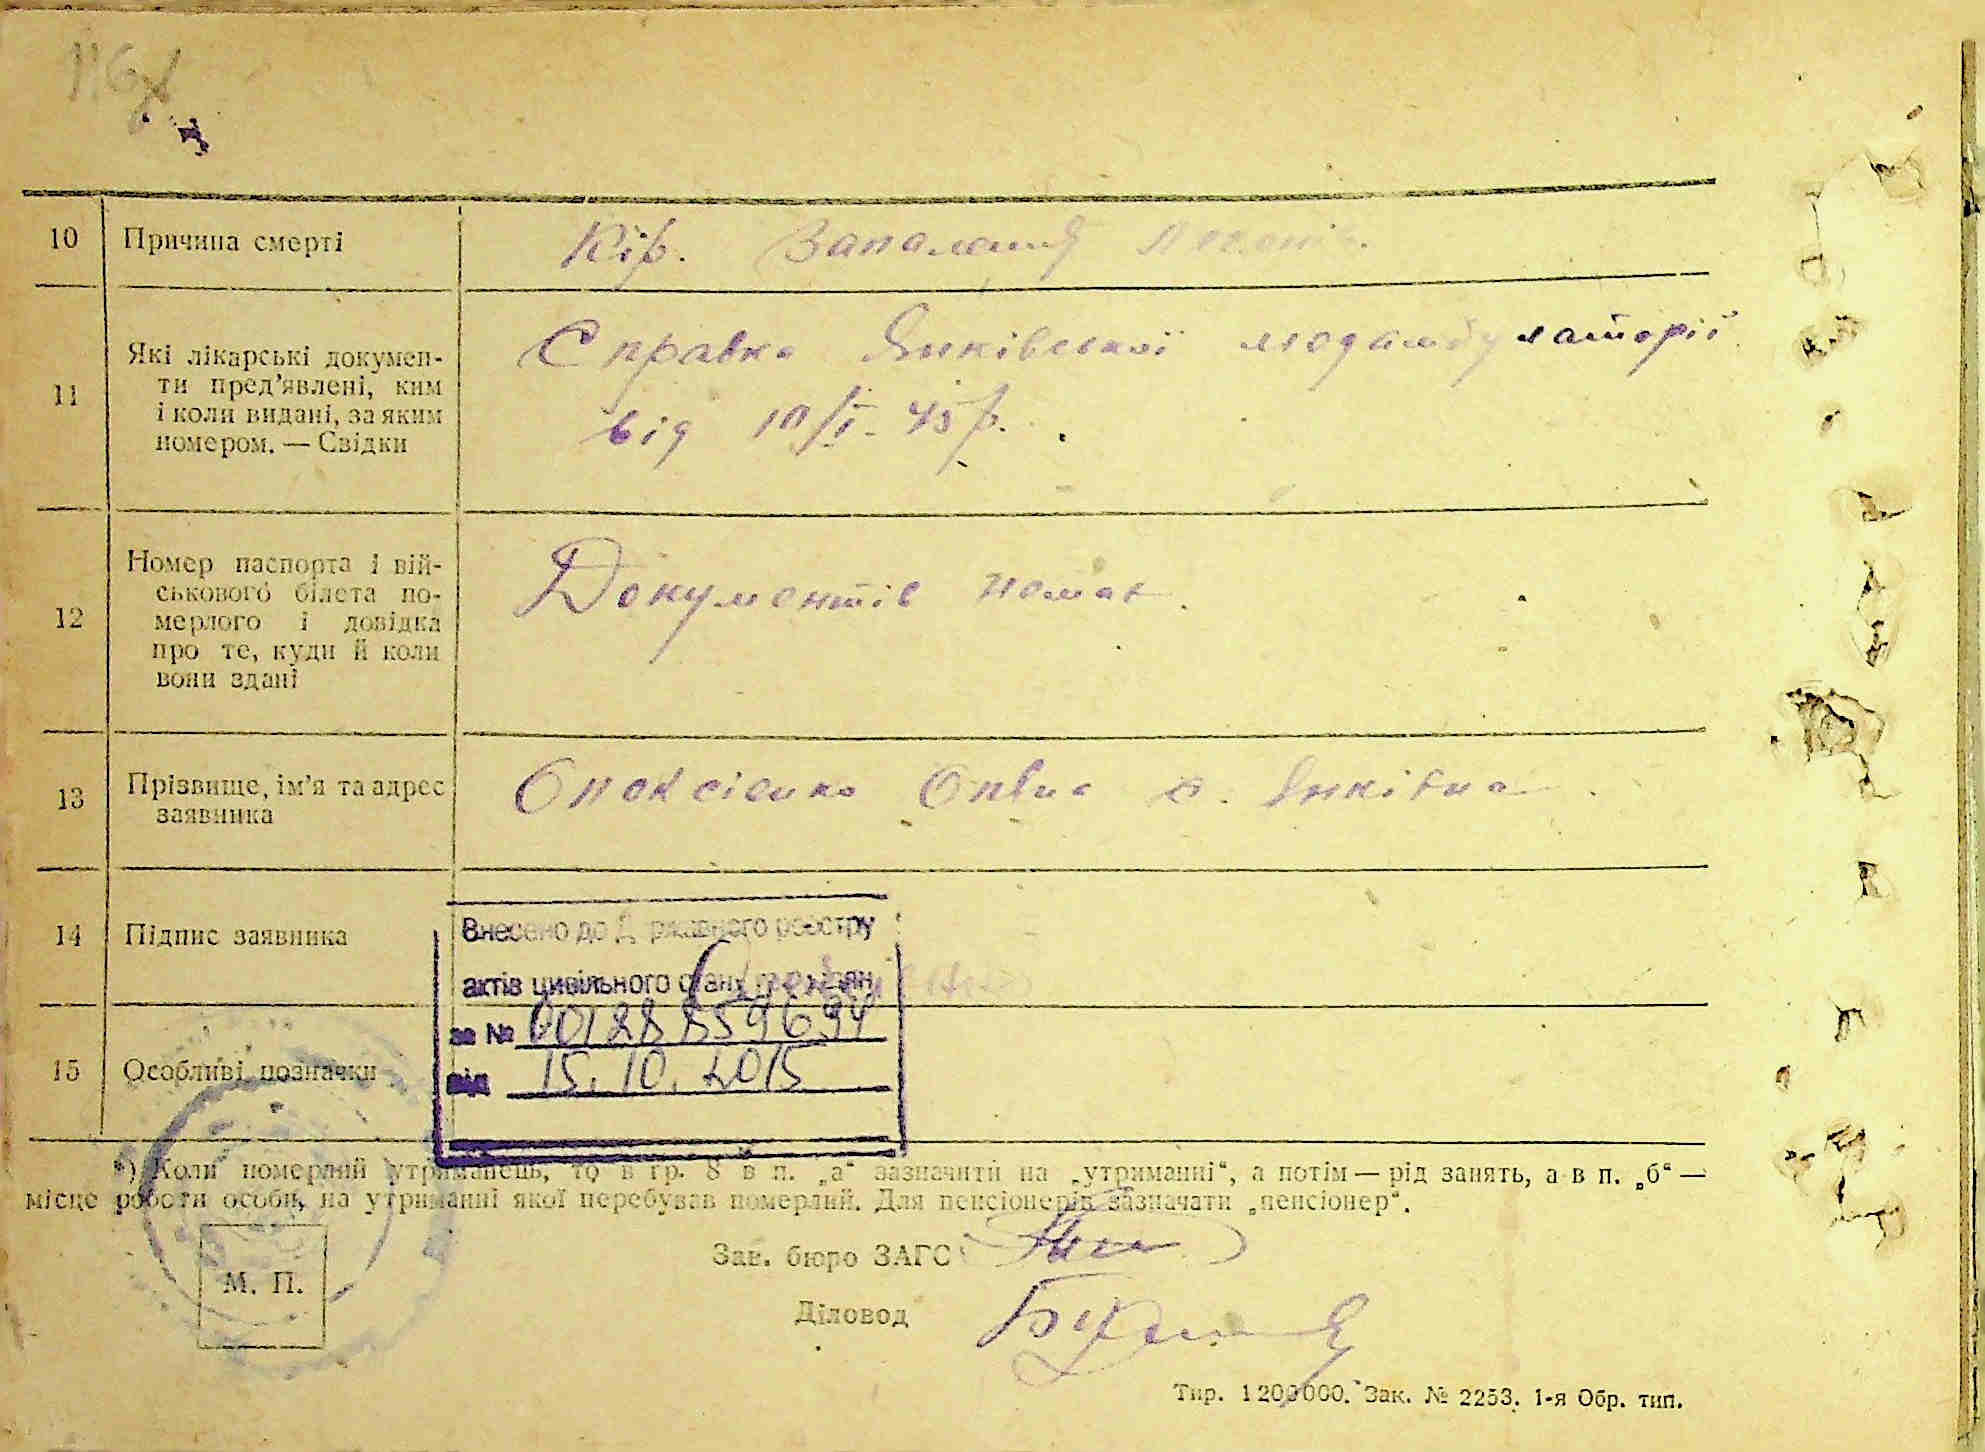 116
10 Причина смерті Кір. Запалення легенів.
11 Які лікарські докумен-
ти пред'явлені, ким
і коли видані, за яким
номером. — Свідки
Справка Янківської людамбулаторії
від 10/I-45 р.
12 Номер паспорта і вій-
ськового білета по-
мерлого і довідка
про те, куди й коли
вони здані
Документів немає.
13 Прізвище, ім'я та адрес
заявника
с. Янківка
14 Підпис заявника
Внесено до Державного реєстру
актів цивільного стану громадян
за № 00128859694
від 15.10.2015
15 Особливі позначки
*) Коли померлий утриманець, то в гр. 8 в п. „а“ зазначити на „утриманні“, а потім — рід занять, а в п. „б“ —
місце роботи особи, на утриманні якої перебував померлий. Для пенсіонерів зазначати „пенсіонер“.
Зав. бюро ЗАГС
М. П.
Діловод
Тир. 1200000. Зак. № 2253. 1-я Обр. тип.